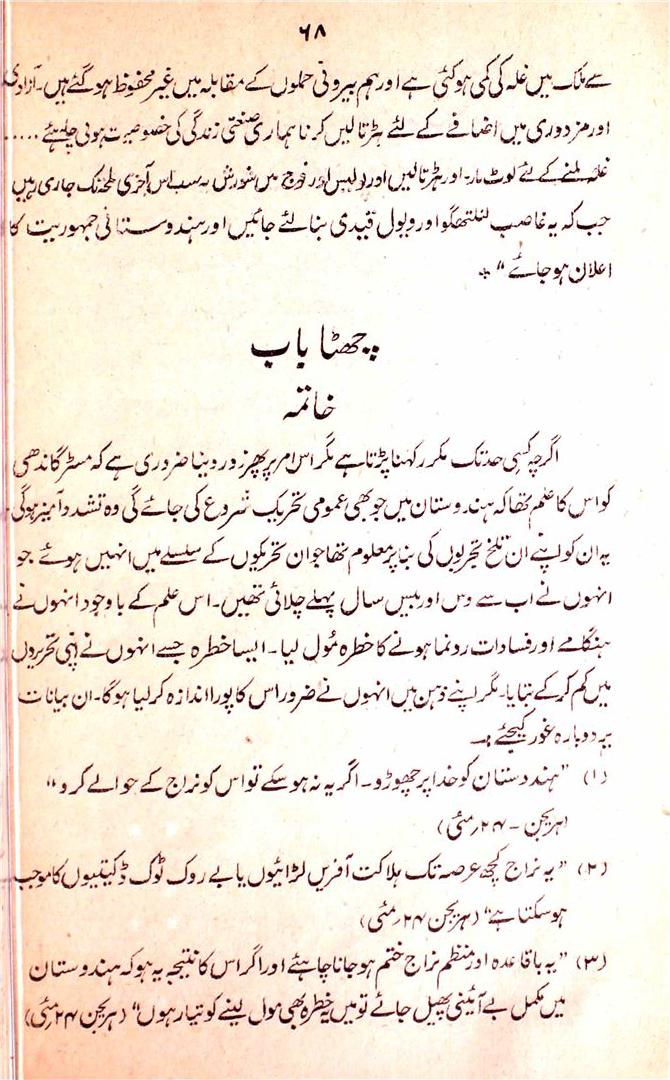 ۶۸
سے ملک میں غلہ کی کمی ہو گئی ہے اور ہم بیرونی حملوں کے مقابلہ میں غیر محفوظ ہو گئے ہیں۔ آزادی
اور مزدوری میں اضافے کے لئے ہڑتالیں کرنا ہماری صنعتی زندگی کی خصوصیت ہونی چاہئے .....
غلہ ملنے کے لئے لوٹ مار۔ اور ہڑتالیں اور پولیس اور فوج میں شورش یہ سب اس آخری لمحہ تک جاری رہیں
جب کہ یہ غاصب لنلتھگو اور ویول قیدی بنا لئے جائیں اور ہندوستانی جمہوریت کا
اعلان ہو جائے“ ٭
چھٹا باب
خاتمہ
اگرچہ کسی حد تک مکرر کہنا پڑتا ہے مگر اس امر پر پھر زور دینا ضروری ہے کہ مسٹر گاندھی
کو اس کا علم تھا کہ ہندوستان میں جو بھی عمومی تحریک شروع کی جائے گی وہ تشدد آمیز ہوگی
یہ ان کو اپنے ان تلخ تجربوں کی بنا پر معلوم تھا جو ان تحریکوں کے سلسلے میں انہیں ہوئے جو
انہوں نے اب سے دس اور بیس سال پہلے چلائی تھیں۔ اس علم کے باوجود انہوں نے
ہنگامے اور فسادات رونما ہونے کا خطرہ مُول لیا۔ ایسا خطرہ جسے انہوں نے اپنی تحریروں
میں کم کر کے بتایا۔ مگر اپنے ذہن میں انہوں نے ضرور اس کا پورا اندازہ کر لیا ہوگا۔ ان بیانات
پر دوبارہ غور کیجئے :۔
(۱) ”ہندوستان کو خدا پر چھوڑو۔ اگر یہ نہ ہو سکے تو اس کو نراج کے حوالے کرو“
(ہریجن - ۲۴ مئی)
(۲) ”یہ نراج کچھ عرصہ تک ہلاکت آفریں لڑائیوں یا بے روک ٹوک ڈکیتیوں کا موجب
ہو سکتا ہے“ (ہریجن ۲۴ مئی)
(۳) ”یہ باقاعدہ اور منظم نراج ختم ہو جانا چاہئے اور اگر اس کا نتیجہ یہ ہو کہ ہندوستان
میں مکمل بے آئینی پھیل جائے تو میں یہ خطرہ بھی مول لینے کو تیار ہوں“ (ہریجن ۲۴ مئی)